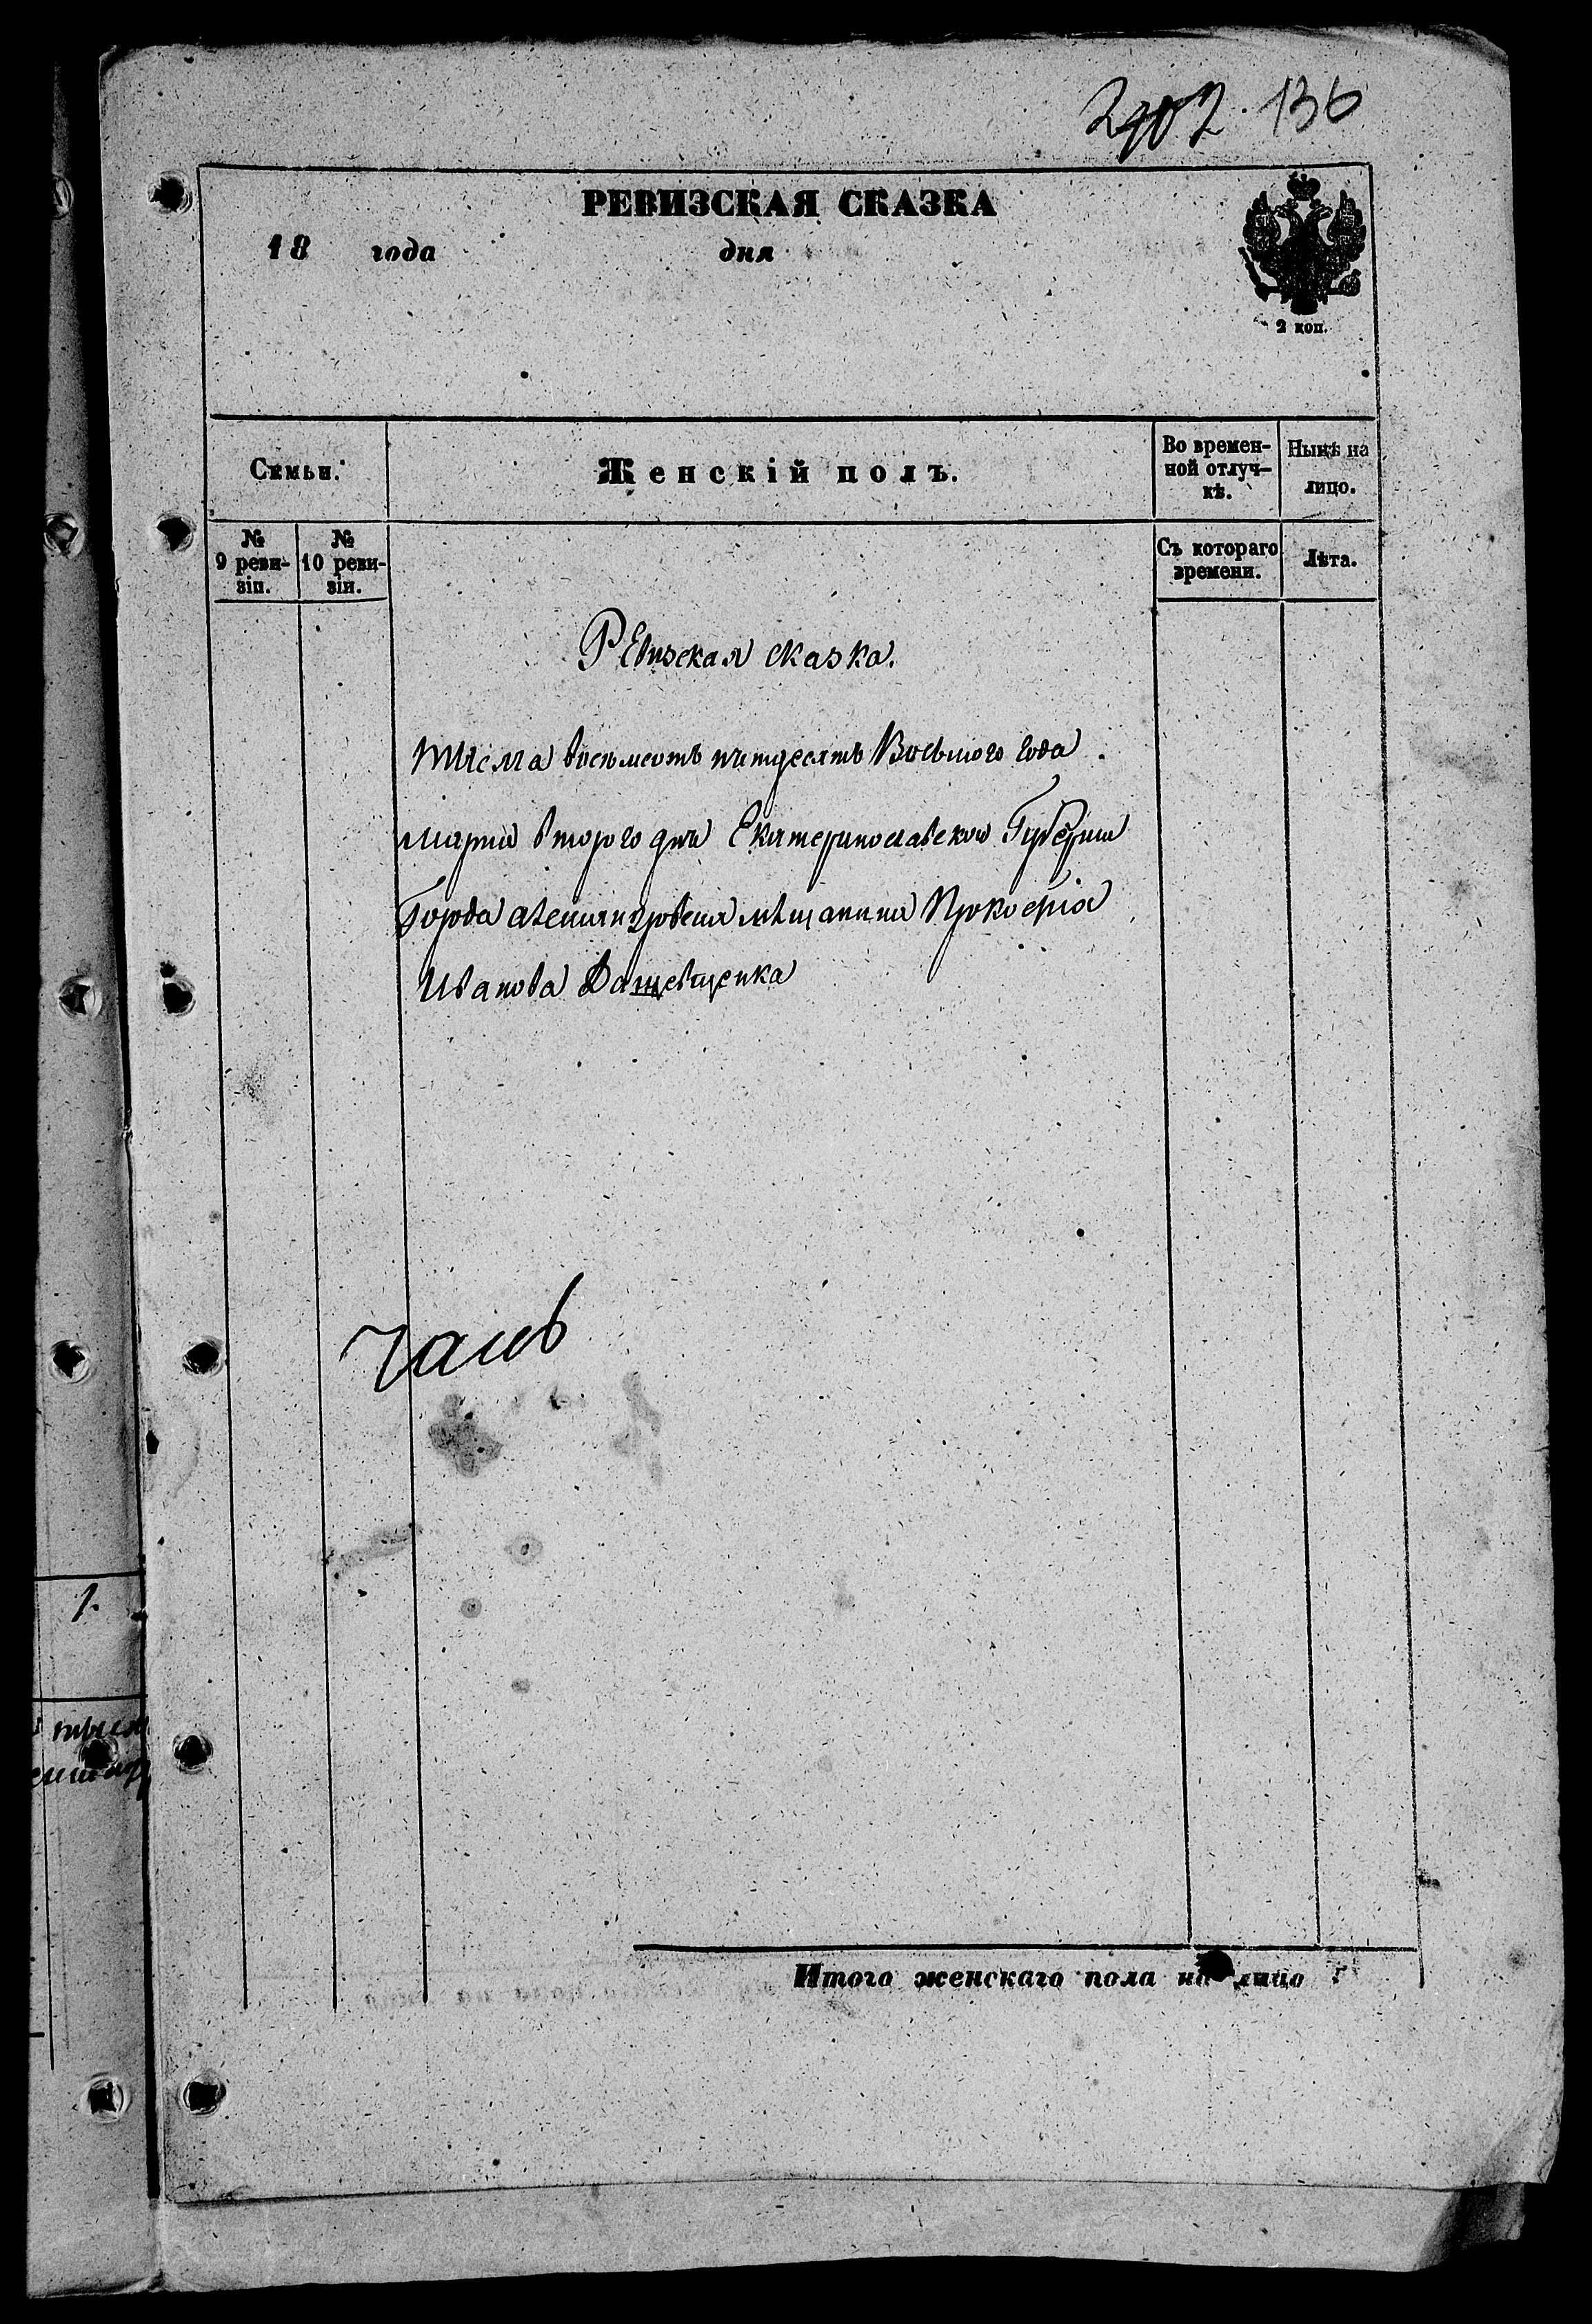 136
РЕВИЗСКАЯ СКАЗКА
18 года дня
2 коп.
Семьи.
Женскій полъ.
Во времен-
ной отлуч-
кѣ.
Нынѣ на
лицо.
№
9 реви-
зіи.
№
10 реви-
зіи.
Съ котораго
времени.
Лѣта.
Ревизская сказка.
Тысяча восемсотъ пятдесятъ Восьмого года
марта второго дня Екатеринославской Губерніи
Города александровска мѣщанина Прокофія
Иванова
1.
Итого женскаго пола на лицо